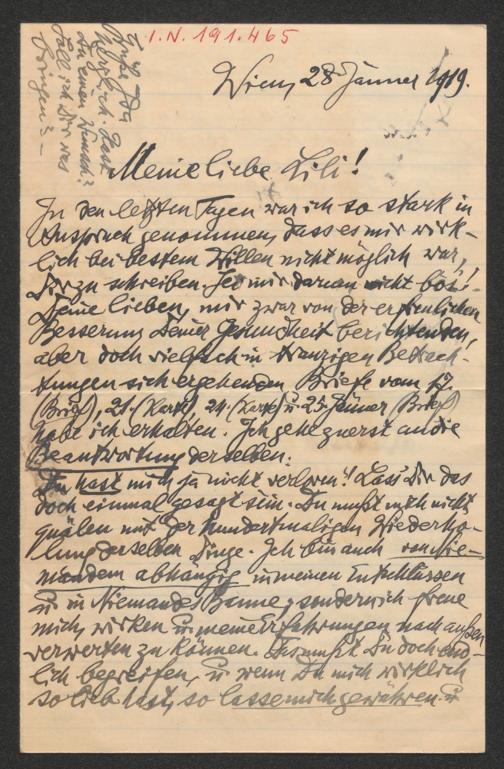 I.N. 191.465
Grüße Du
herzlich. Hast
Du einen Wunsch?
Soll ich Dir was
bringen? –
Wien, 28 Jänner 1919.
Meine liebe Lili!
In den letzten Tagen war ich so stark in
Anspruch genommen, dass es mir wirk-
lich bei bestem Willen nicht möglich war,
Dir zu schreiben. Sei mir darum nicht bös!
Deine lieben, mir zwar von der erfreulichen
Besserung Deiner Gesundheit berichtenden,
aber doch vielfach in traurigen Betrach-
tungen sich ergehenden Briefe vom 17.
(Brief), 21. (Karte), 24. (Karte) u. 25. Jänner (Brief)
habe ich erhalten. Ich gehe zuerst an die
Beantwortung derselben.
Du hast mich ja nicht verloren! Lass Dir das
doch einmal gesagt sein. Du mußt mich nicht
quälen mit der hundertmaligen Wiederho-
lung derselben Dinge. Ich bin auch von Nie-
mandem abhängig in meinen Entschlüssen
u. in Niemandes Banne, sondern ich freue
mich, wirken u. meine Erfahrungen nach außen
verwerten zu können. Das mußt Du doch end-
lich begreifen, u. wenn Du mich wirklich
so lieb hast, so lasse mich gewähren u.